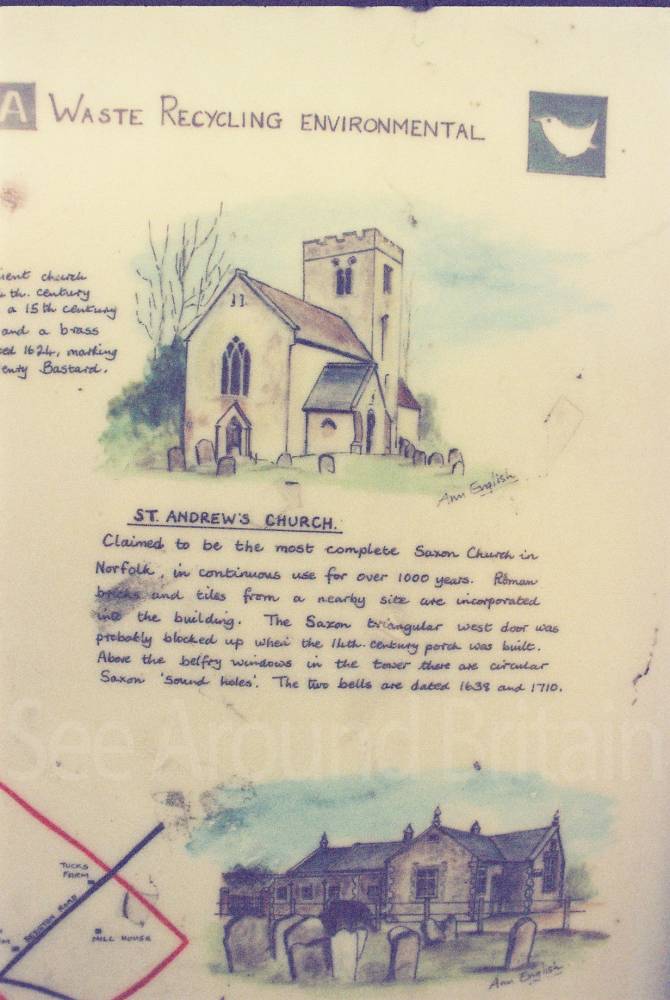 A WASTE RECYCLING ENVIRONMENTAL
ient church
th. century
a 15th century
and a brass
ed 1624, marking
enry Bastard.
Ann English
ST. ANDREW'S CHURCH.
Claimed to be the most complete Saxon Church in
Norfolk, in continuous use for over 1000 years. Roman
bricks and tiles from a nearby site are incorporated
into the building. The Saxon triangular west door was
probably blocked up when the 14th. century porch was built.
Above the belfry windows in the tower there are circular
Saxon 'sound holes'. The two bells are dated 1638 and 1710.
See Around Britain
TUCKS
FARM
ROAD
MILL HOUSE
Ann English